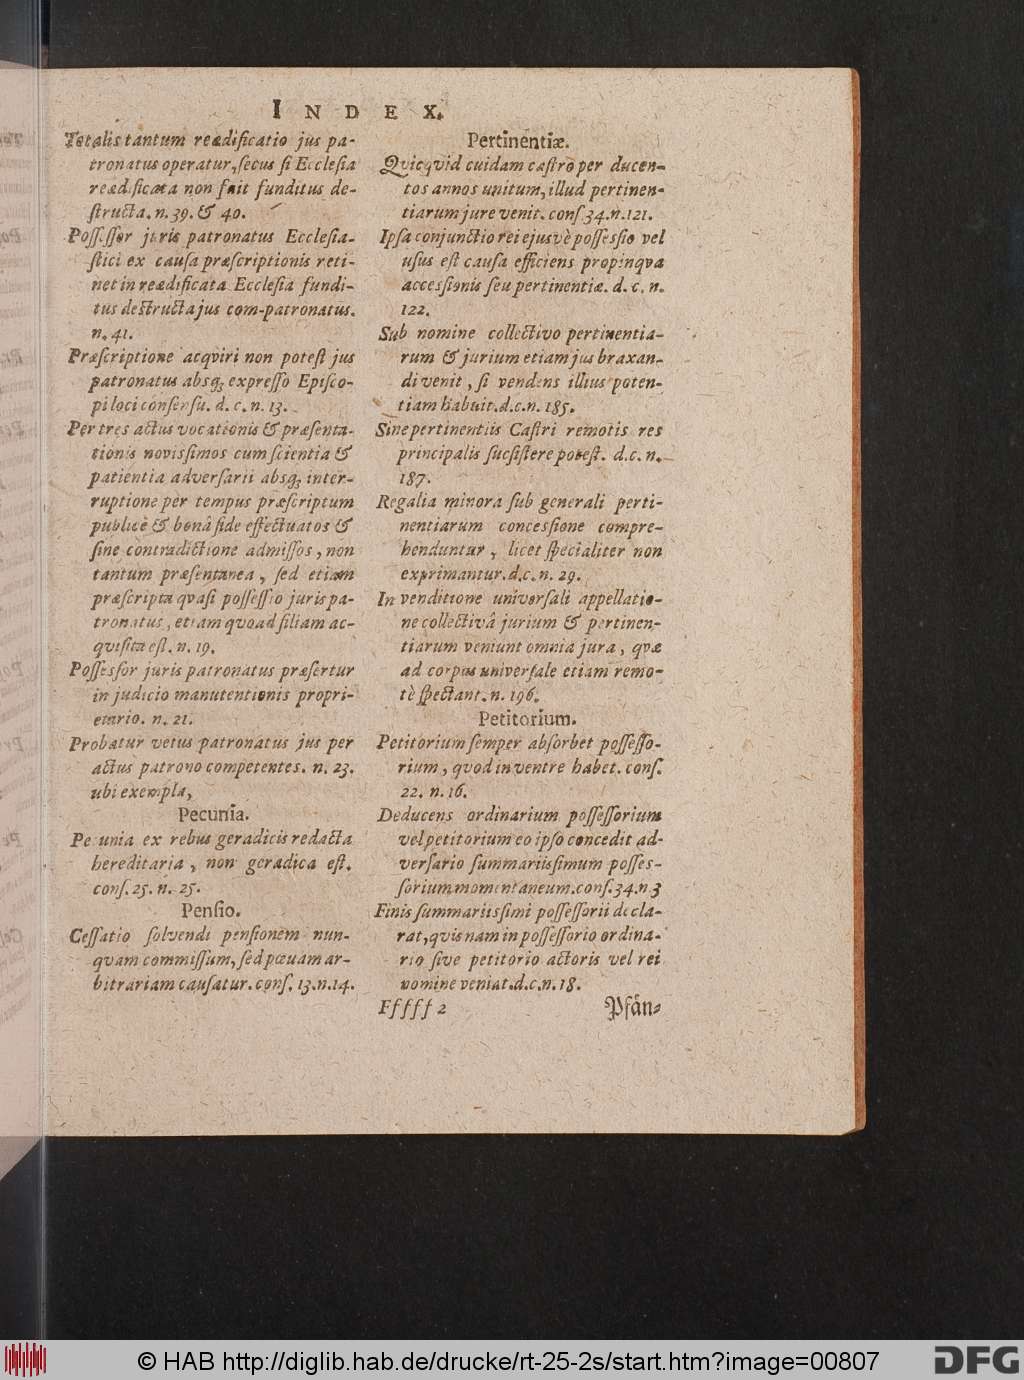 INDEX.
Totalis tantum reædificatio jus pa-
tronatus operatur, secus si Ecclesia
reædificata non fuit funditus de-
structa. n. 39. & 40.
Possessor juris patronatus Ecclesia-
stici ex causa præscriptionis reti-
net in reædificata Ecclesia fundi-
tus destructa jus com-patronatus.
n. 41.
Præscriptione acqviri non potest jus
patronatus absq; expresso Episco-
pi loci consensu. d. c. n. 13.
Per tres actus vocationis & præsenta-
tionis novissimos cum scientia &
patientia adversarii absq; inter-
ruptione per tempus præscriptum
publicè & bonâ fide effectuatos &
sine contradictione admissos, non
tantum præsentanea, sed etiam
præscripta quasi possessio juris pa-
tronatus, etiam quoad filiam ac-
quisita est. n. 19.
Possessor juris patronatus præfertur
in judicio manutentionis propri-
etario. n. 21.
Probatur vetus patronatus jus per
actus patrono competentes. n. 23.
ubi exempla,
Pecunia.
Pecunia ex rebus geradicis redacta
hereditaria, non geradica est.
cons. 25. n. 25.
Pensio.
Cessatio solvendi pensionem nun-
quam commissum, sed pœnam ar-
bitrariam causatur. cons. 13. n. 14.
Pertinentiæ.
Qvicqvid cuidam castro per ducen-
tos annos unitum, illud pertinen-
tiarum jure venit. cons 34. n. 121.
Ipsa conjunctio rei ejusvè possessio vel
usus est causa efficiens propinqva
accessionis seu pertinentiæ. d. c. n.
122.
Sub nomine collectivo pertinentia-
rum & jurium etiam jus braxan-
di venit, si vendens illius poten-
tiam habuit. d. c. n. 185.
Sine pertinentiis Castri remotis res
principalis sucsistere potest. d. c. n.
187.
Regalia minora sub generali perti-
nentiarum concessione compre-
henduntur, licet specialiter non
exprimantur. d. c. n. 29.
In venditione universali appellatio-
ne collectivâ jurium & pertinen-
tiarum veniunt omnia jura, qvæ
ad corpus universale etiam remo-
tè spectant. n. 196.
Petitorium.
Petitorium semper absorbet possesso-
rium, qvod in ventre habet. cons.
22. n. 16.
Deducens ordinarium possessorium
vel petitorium eo ipso concedit ad-
versario summariissimum posses-
sorium momentaneum. cons. 34. n 3
Finis summariissimi possessorii decla-
rat, qvisnam in possessorio ordina-
rio sive petitorio actoris vel rei
nomine veniat. d. c. n. 18.
Fffff 2
Pfän-
© HAB http://diglib.hab.de/drucke/rt-25-2s/start.htm?image=00807
DFG